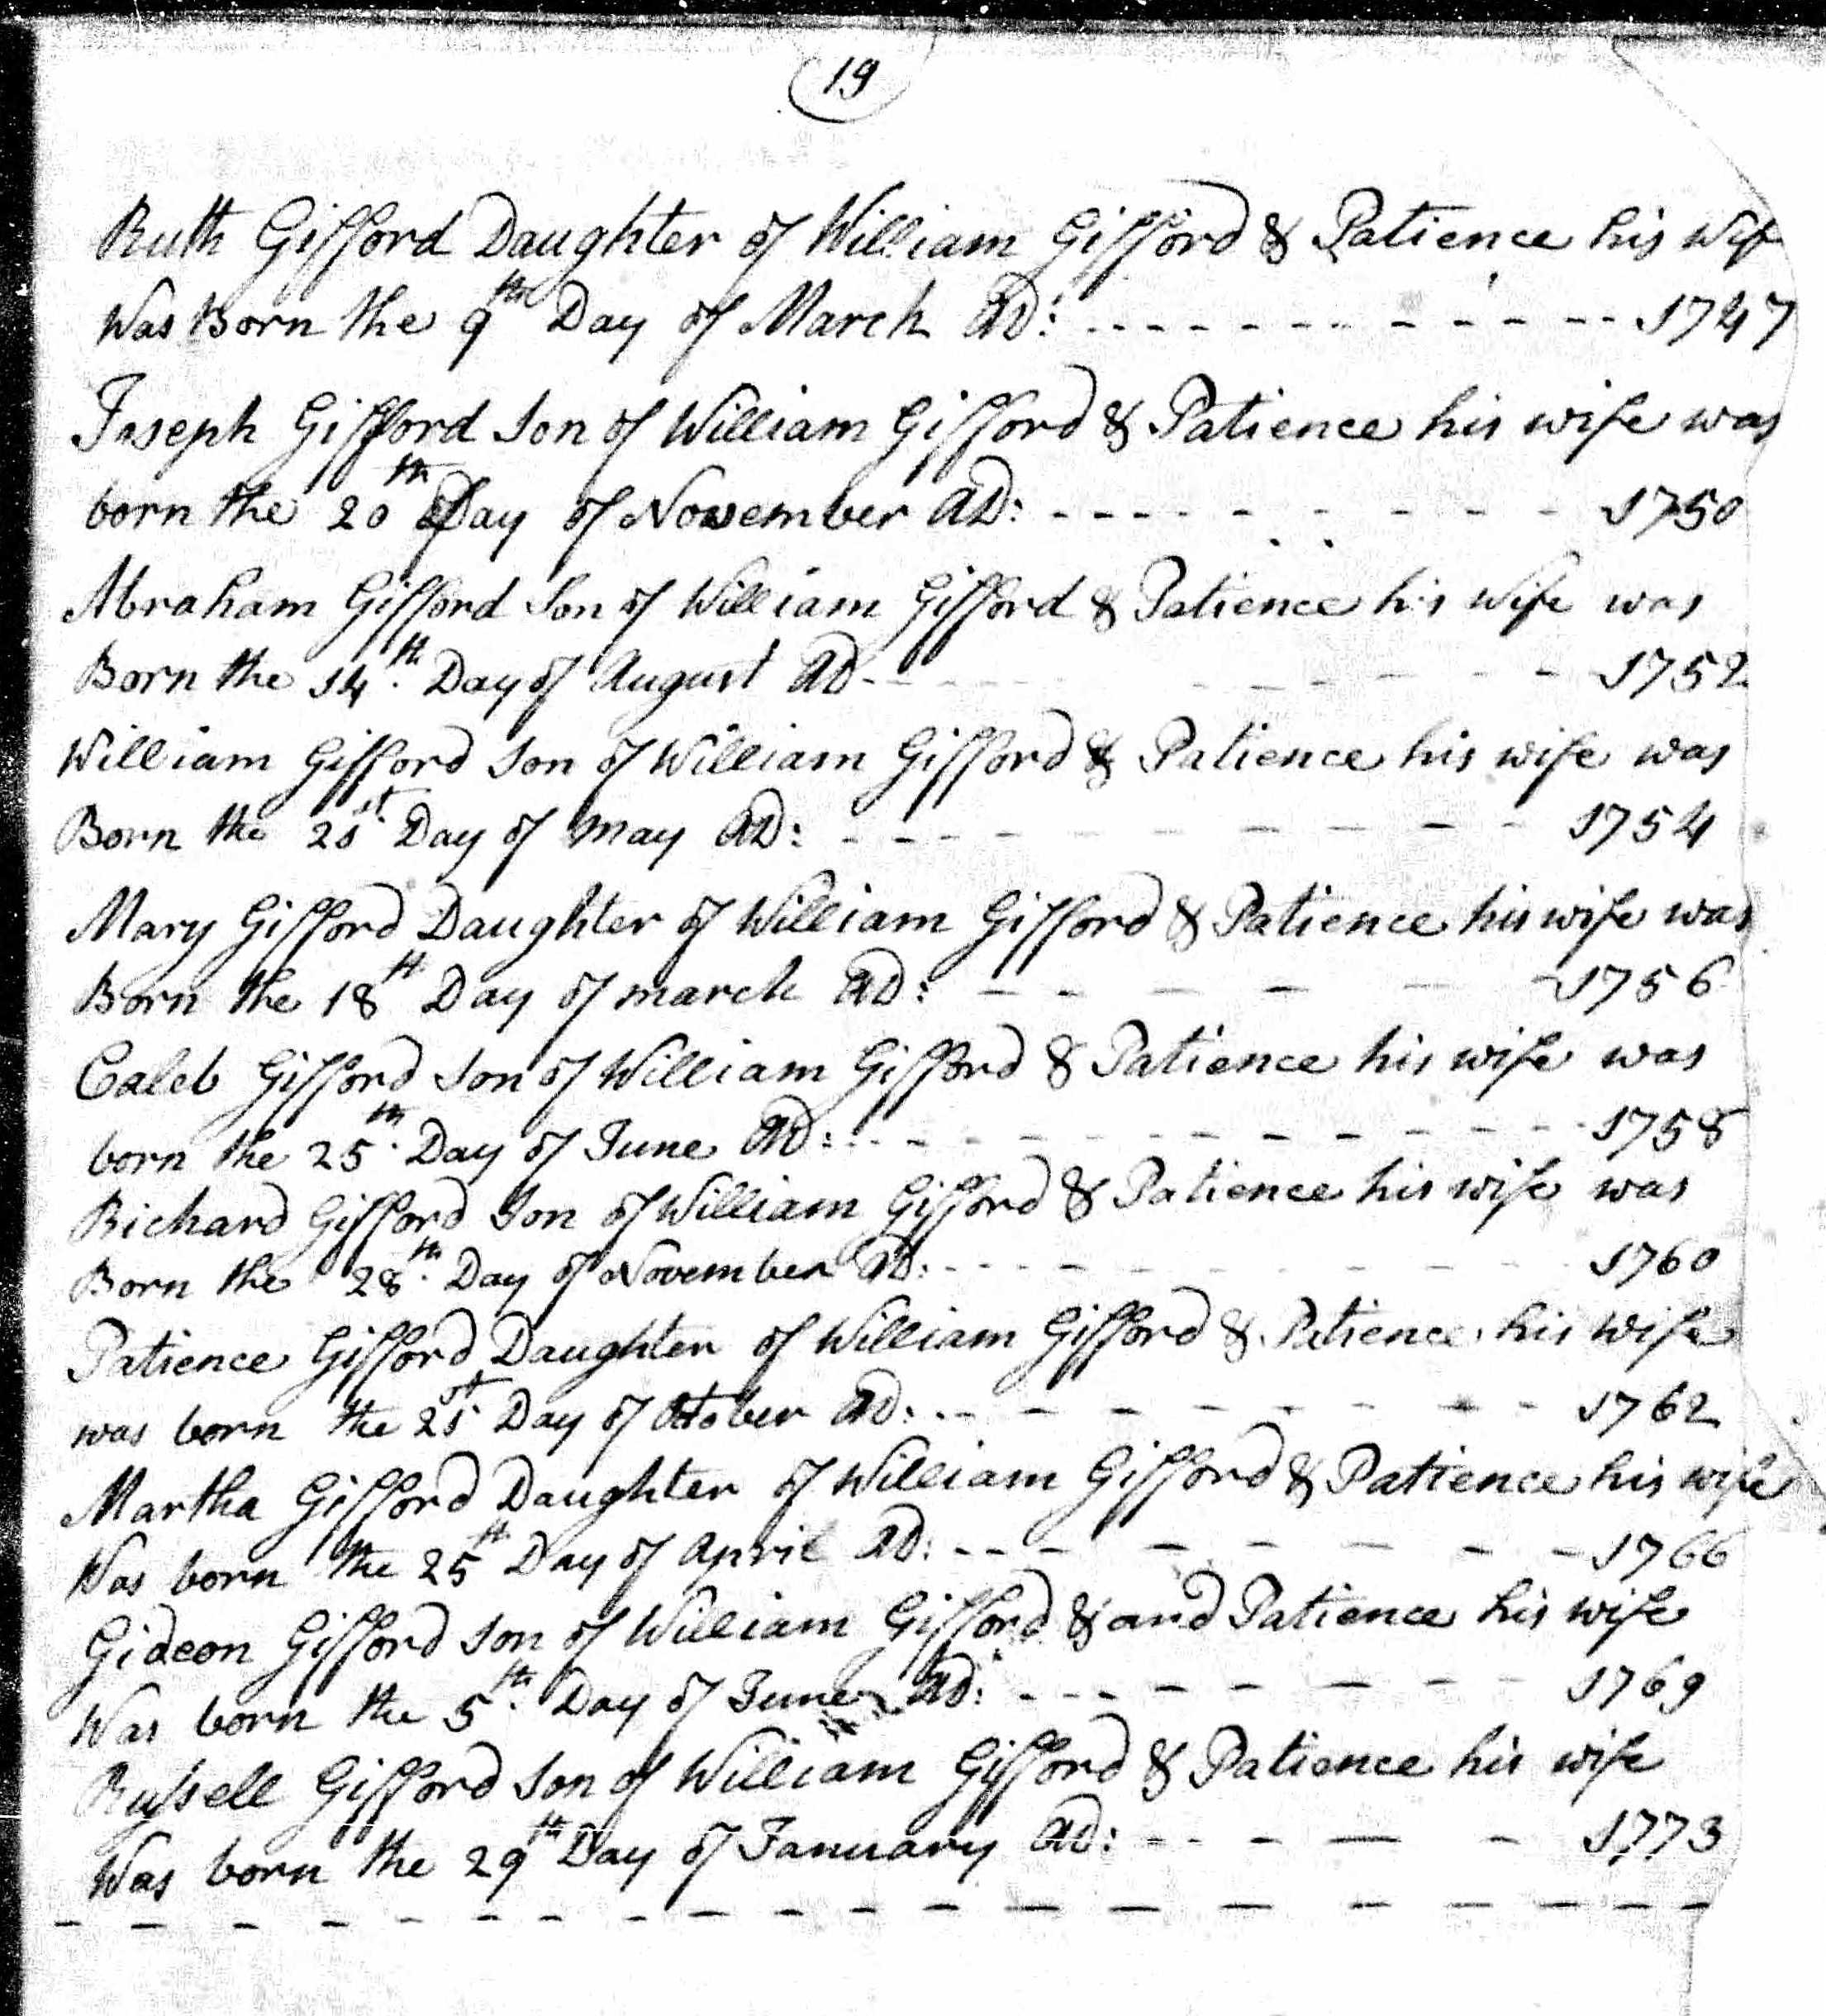 19
Ruth Gifford Daughter of William Gifford & Patience his wife
Was Born the 9th Day of March AD: - - - - - - - - - - - 1747
Joseph Gifford Son of William Gifford & Patience his wife was
born the 20th Day of November AD: - - - - - - - - - 1750
Abraham Gifford Son of William Gifford & Patience his Wife was
Born the 14th Day of August AD - - - - - - - 1752
William Gifford Son of William Gifford & Patience his wife was
Born the 21st Day of may AD: - - - - - - - - - 1754
Mary Gifford Daughter of William Gifford & Patience his wife was
Born the 18th Day of march AD: - - - - - - 1756
Caleb Gifford Son of William Gifford & Patience his wife was
born the 25th Day of June AD: - - - - - - - - - - - 1758
Richard Gifford Son of William Gifford & Patience his wife was
Born the 28th Day of November AD: - - - - - - - - - 1760
Patience Gifford Daughter of William Gifford & Patience his wife
was born the 21st Day of October AD: - - - - - - - - 1762
Martha Gifford Daughter of William Gifford & Patience his wife
Was born the 25th Day of April AD: - - - - - - - - 1766
Gideon Gifford Son of William Gifford & and Patience his wife
Was born the 5th Day of June AD: - - - - - - - - 1769
Rufsell Gifford Son of William Gifford & Patience his wife
Was born the 29th Day of January AD: - - - - - 1773
- - - - - - - - - - - - - - - - - - - -